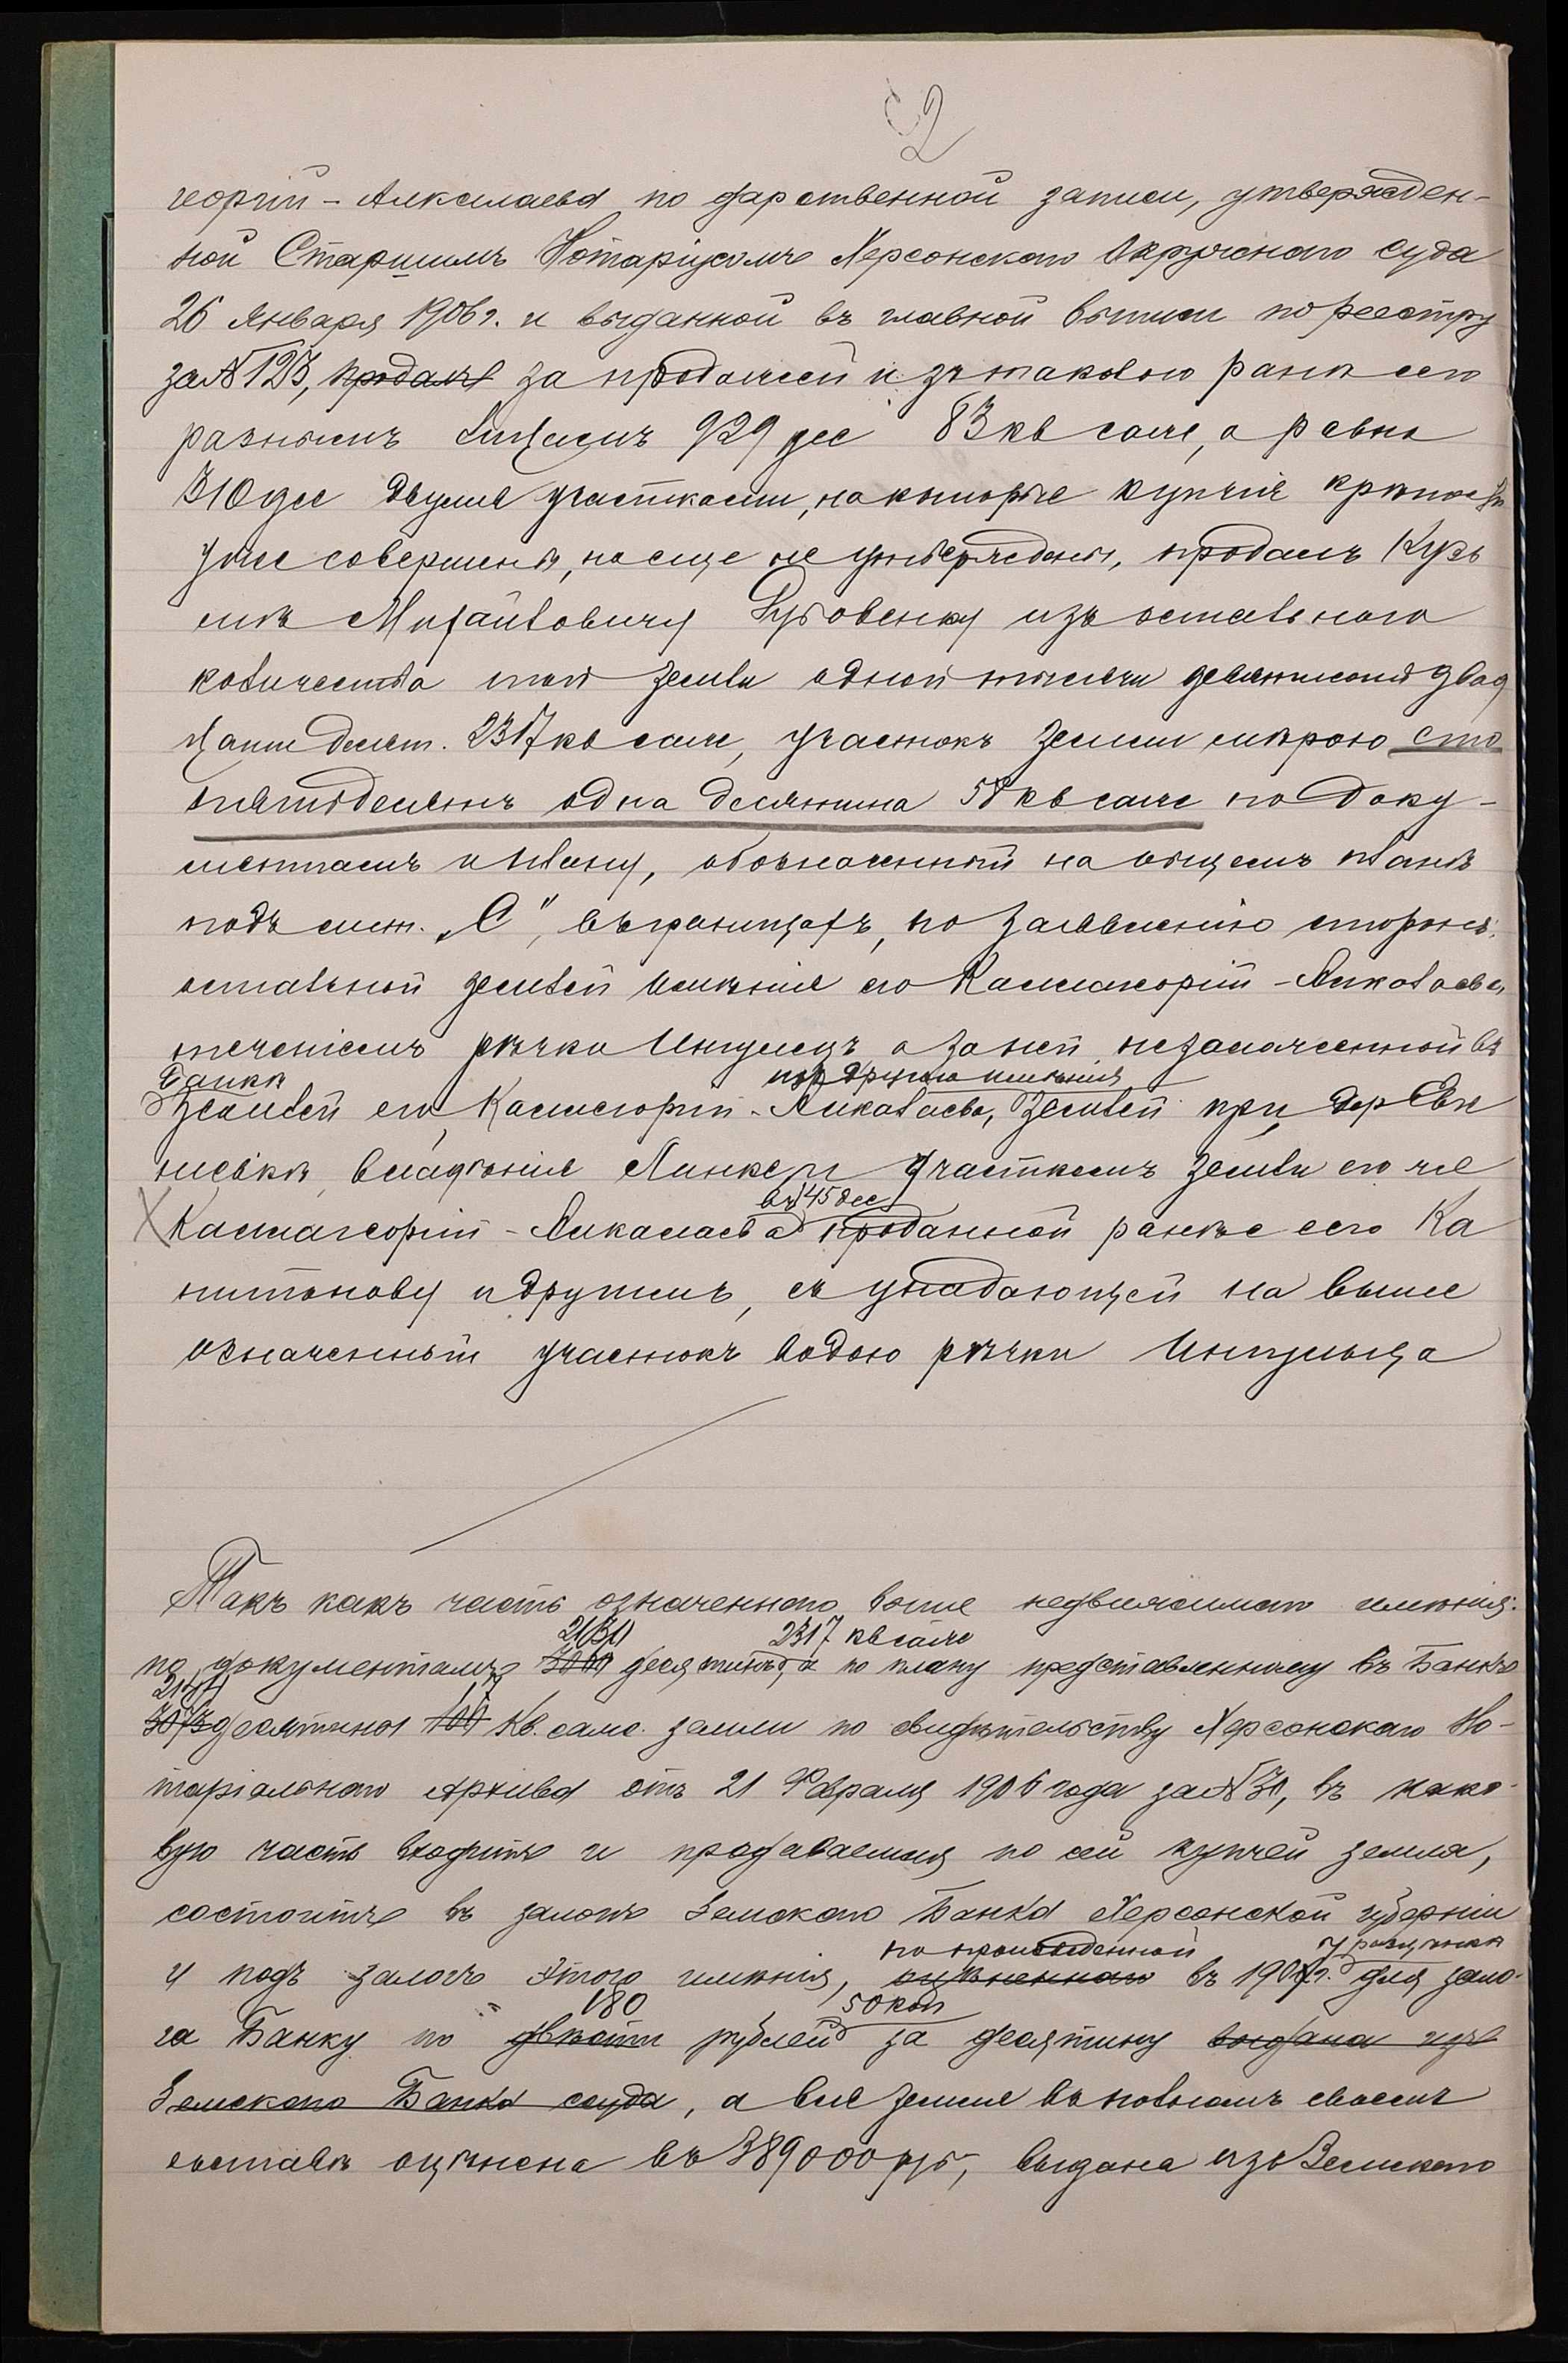 2
георгій - Алкалаевъ по дарственной записи, утвержден-
ной Старшимъ Нотаріусомъ Херсонскаго Окружнаго Суда
26 Января 1906 г. и выданной въ главной выписи по реестру
за № 123, продалъ за продажей изъ таковой ранѣе его
разнымъ лицамъ 929 дес 83 кв саж, а равно
310 дес двумя участками, на которые купчія крѣпости
уже совершены, но еще не утверждены, продалъ Кузь
мѣ Михайловичу Рубовенку изъ остального
количества той земли одной тысячи девятисотъ двад
цати десят. 2317 кв саж, участокъ земли мѣрою сто
пятьдесятъ одна десятина 58 кв саж по доку-
ментамъ и плану, обозначенный на общемъ планѣ
подъ лит. „С", въ границахъ, по заявленію сторонъ:
остальной землей имѣнія его Калмакоргій - Алкалаева
теченіемъ рѣчки Ингулецъ а за ней незаложенной въ
Банкѣ изъ другого имѣнія
землей его Калмасоргій - Алкалаева, землей при дер Евг
ньевкѣ, владѣніе Линке и участкомъ земли его же
въ 145 дес
Калмагеоргій - Алкалаева проданной ранѣе его Ка
питанову и другимъ, съ упадающей на выше
означенный участокъ водою рѣчки Ингульца
Такъ какъ часть означеннаго выше недвижимаго имѣнія:
2130 2317 кв саж
по документамъ десятинъ, а по плану представленному въ Банкъ
десятины 100 Кв. саж. земли по свидѣтельству Херсонскаго Но-
таріальнаго Архива отъ 21 Февраля 1906 года за № 30, въ како-
вую часть входитъ и продаваемая по сей купчей земля,
состоитъ въ залогѣ Земскаго Банка Херсонской губерніи
по произведенной
и подъ залогъ этого имѣнія, оцѣненнаго въ 190 г. для зало-
180 50 коп
га Банку по двѣсти рублей за десятину выдана изъ
Земскаго Банка ссуда, а вся земля въ полномъ своемъ
составѣ оцѣнена въ 389000 руб, выдана изъ Земскаго